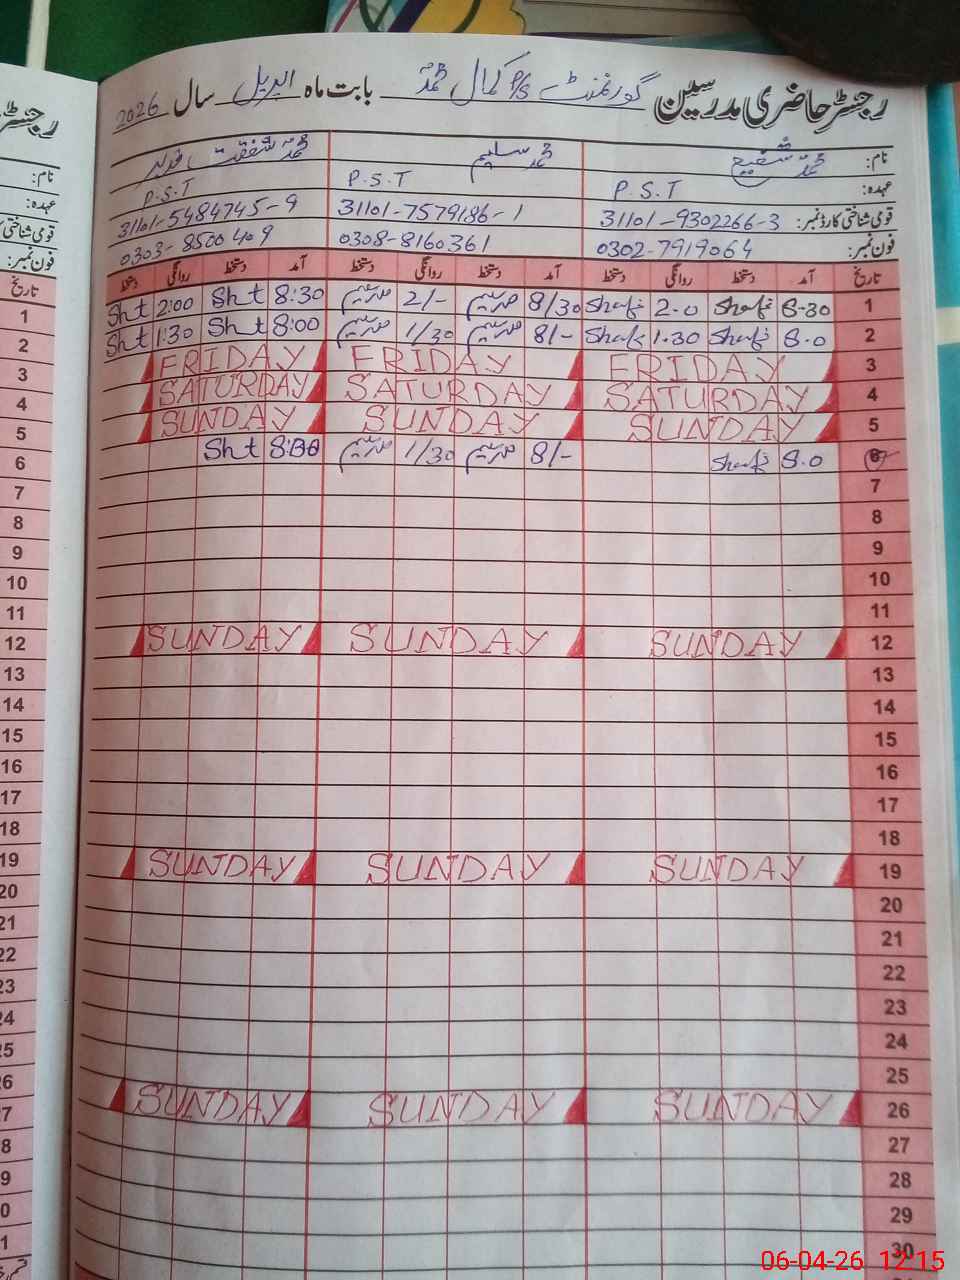 رجسٹر حاضری مدرسین گورنمنٹ P/S کمال محمد بابت ماہ اپریل سال 2026
نام: محمد شفیع محمد سلیم محمد شفقت فرید
عہدہ: P.S.T P.S.T P.S.T
قومی شناختی کارڈ نمبر: 31101-9302266-3 31101-7579186-1 31101-5484745-9
فون نمبر: 0302-7919064 0308-8160361 0303-8500409
تاریخ آمد دستخط روانگی دستخط آمد دستخط روانگی دستخط آمد دستخط روانگی دستخط
1 8-30 Shafi 2.0 Shafi 8/30 2/- 8:30 Sht 2:00 Sht
2 8.0 Shafi 1.30 Shafi 8/- 1/30 8:00 Sht 1:30 Sht
3 FRIDAY FRIDAY FRIDAY
4 SATURDAY SATURDAY SATURDAY
5 SUNDAY SUNDAY SUNDAY
6 8.0 Shafi 8/- 1/30 Sht
7
8
9
10
11
12 SUNDAY SUNDAY SUNDAY
13
14
15
16
17
18
19 SUNDAY SUNDAY SUNDAY
20
21
22
23
24
25
26 SUNDAY SUNDAY SUNDAY
27
28
29
30
رجسٹر
نام:
عہدہ:
قومی شناختی
فون نمبر:
تاریخ
1
2
3
4
5
6
7
8
9
10
11
12
13
14
15
16
17
18
19
20
21
22
23
24
25
26
27
28
29
30
31
06-04-26 12:15